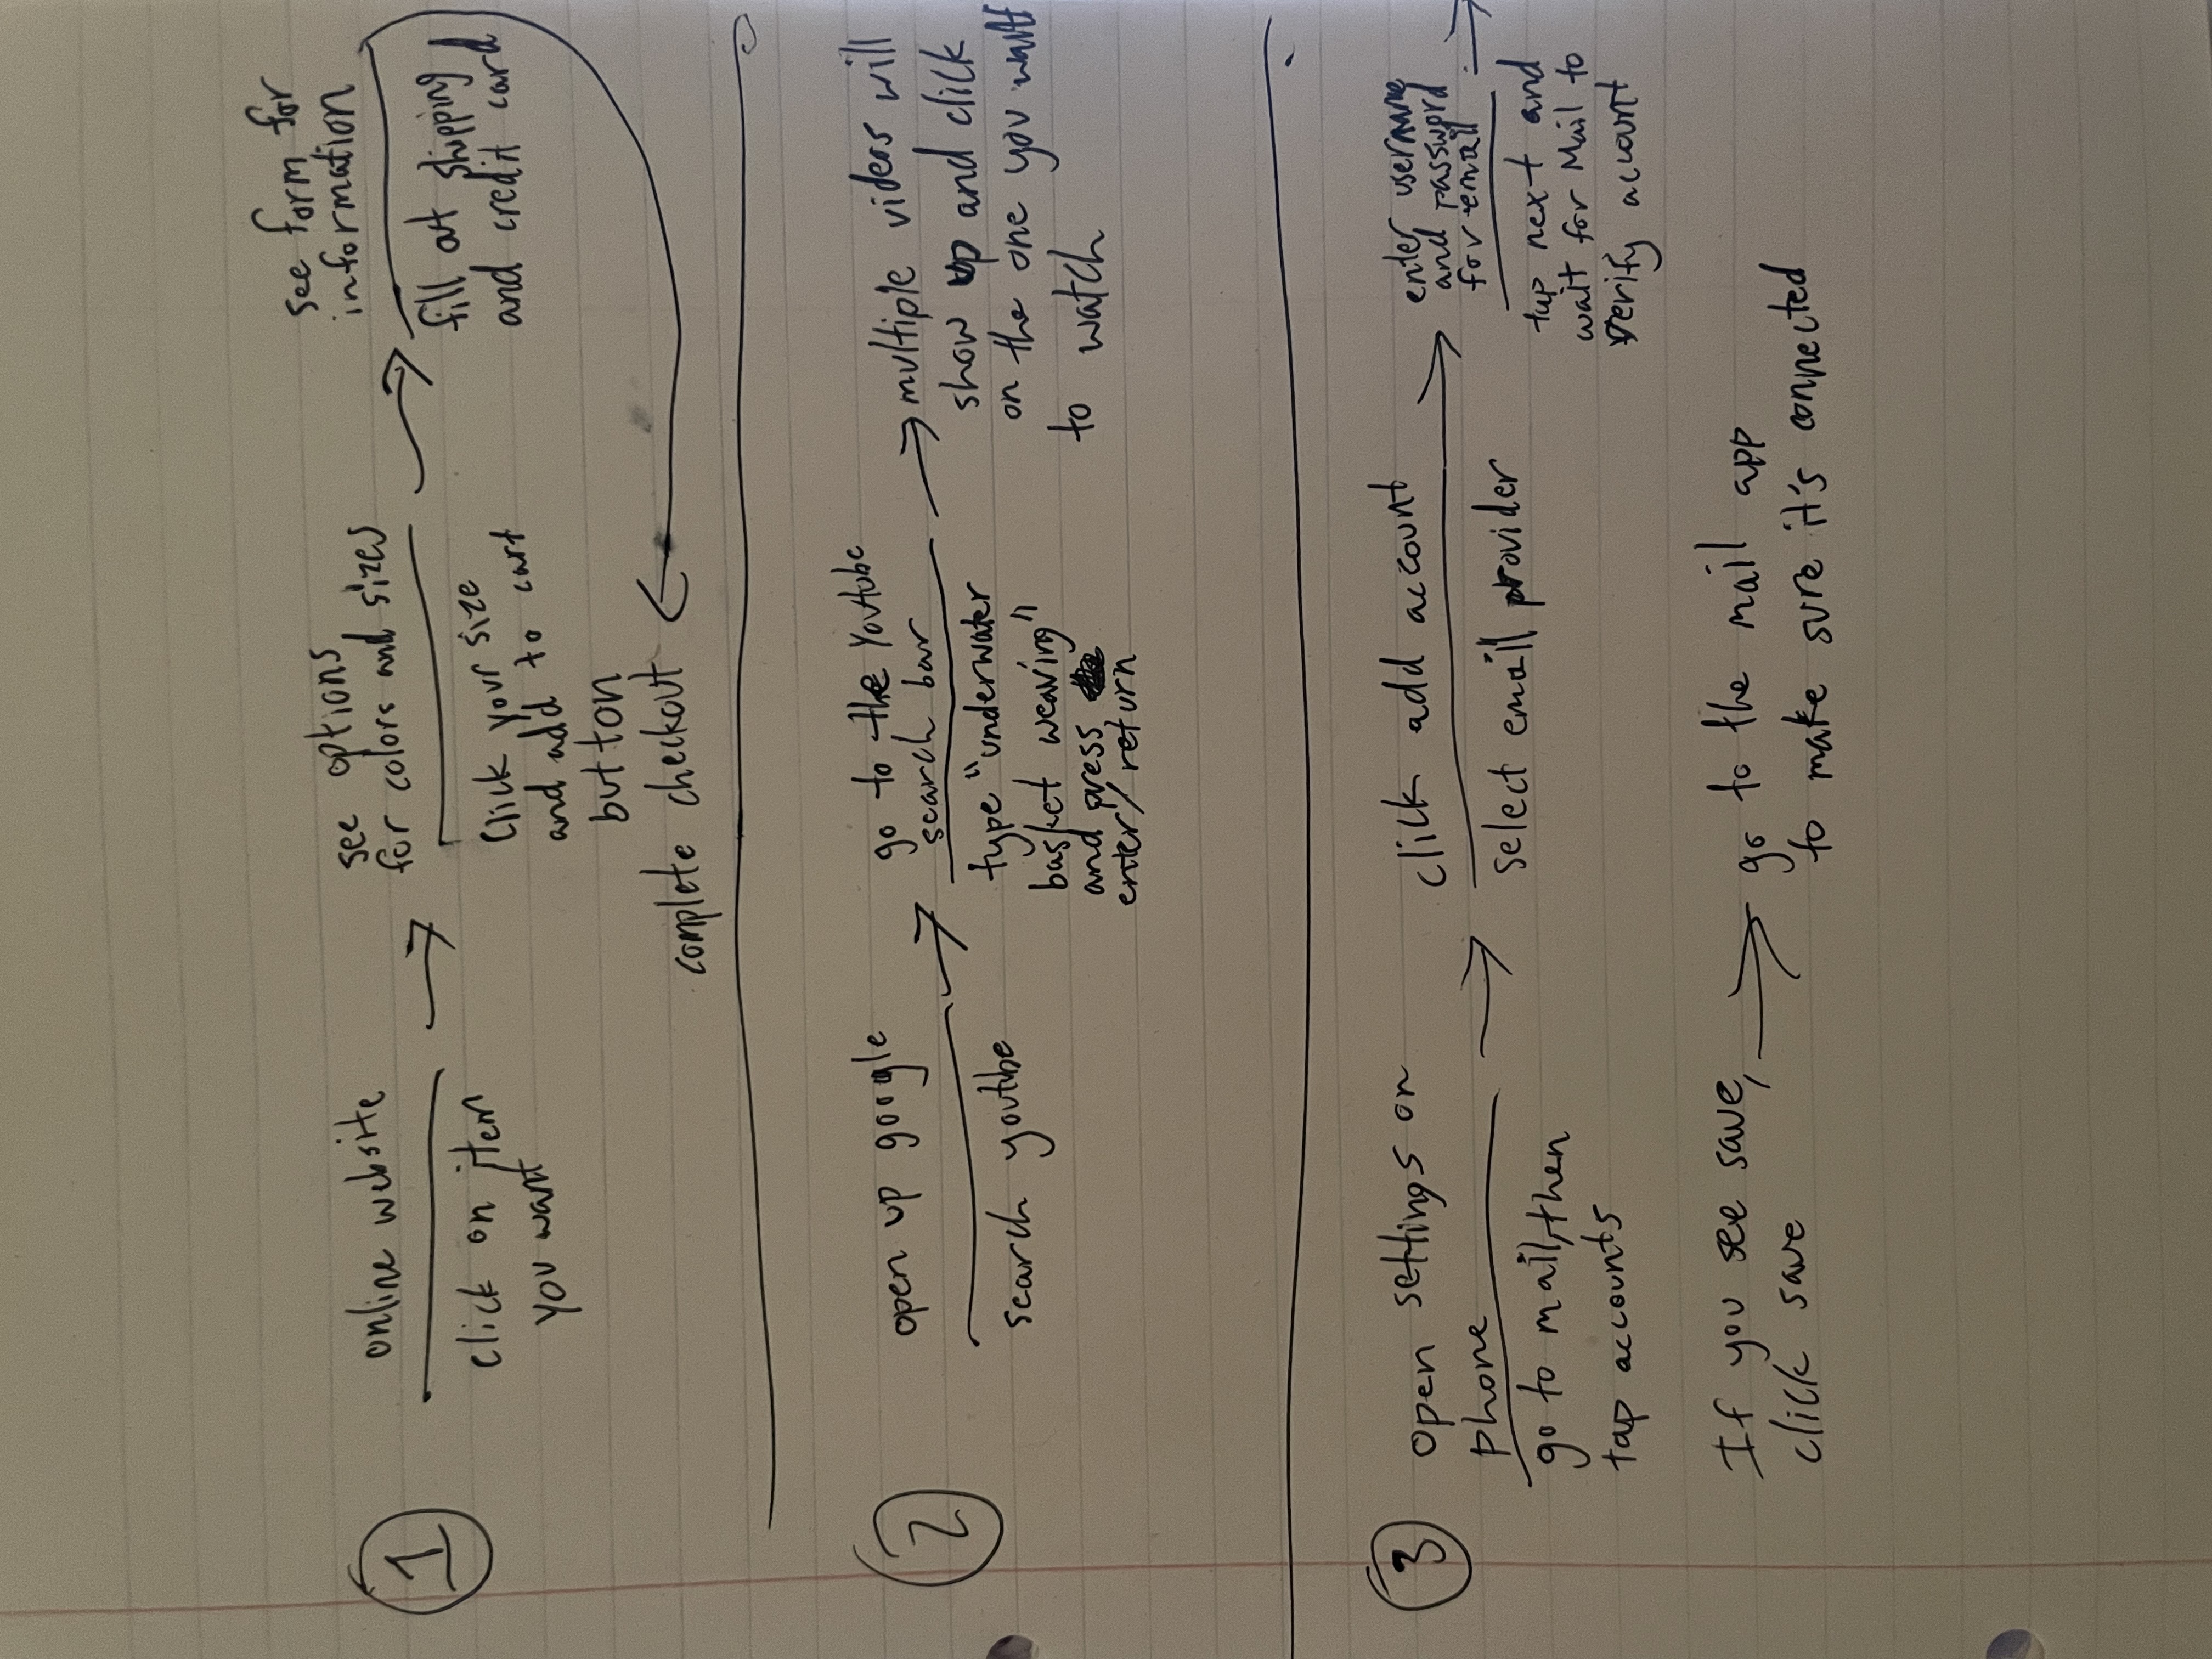 1
online website
click on item
you want
see options
for colors and sizes
Click your size
and add to cart
button
see form for
information
fill out shipping
and credit card
complete checkout
2
open up google
search youtube
go to the Youtube
search bar
type "underwater
basket weaving"
and press
enter/return
multiple videos will
show up and click
on the one you want
to watch
3
open settings on
phone
go to mail, then
tap accounts
click add account
select email provider
enter username
and password
for email
tap next and
wait for Mail to
verify account
If you see save,
click save
go to the mail app
to make sure it's connected